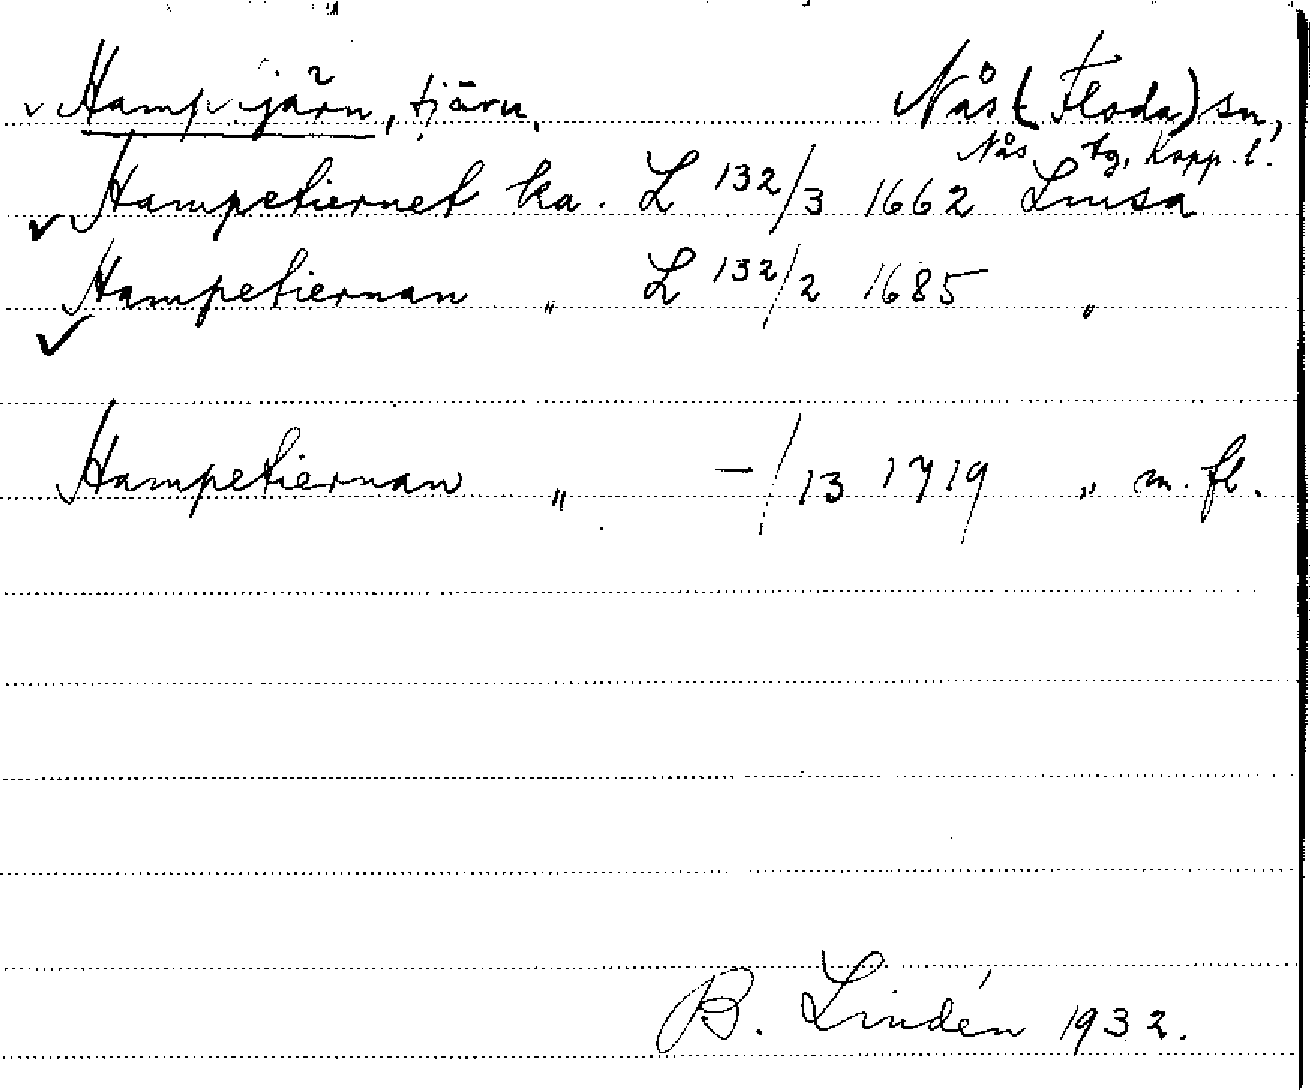 Hamptjärn, tjärn, Nås (Floda) sn,
Nås tg, Kopp. l.
Hampetiernet ka. L 132/3 1662 Lindsa
Hampetiernan " L 132/2 1685 "
Hampetiernan " -/13 1719 " m. fl.
B. Lindén 1932.